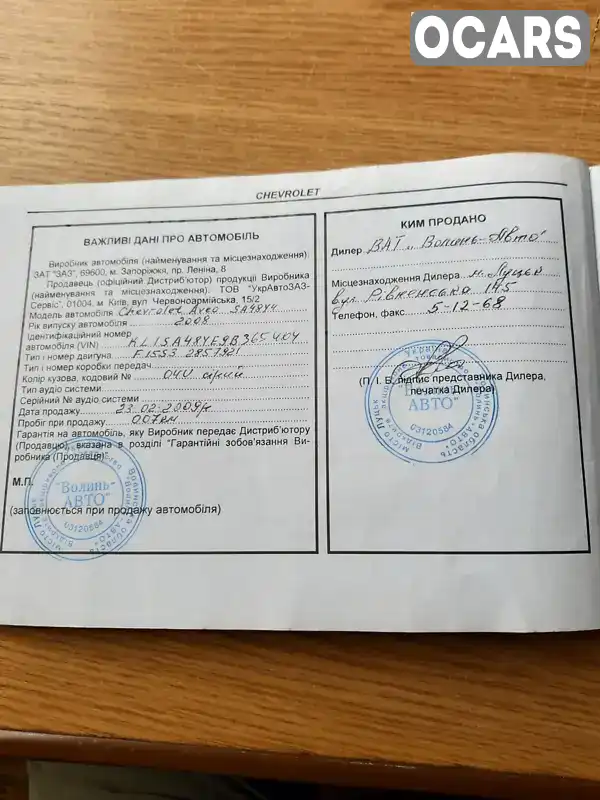 OCARS
CHEVROLET
ВАЖЛИВІ ДАНІ ПРО АВТОМОБІЛЬ
Виробник автомобіля (найменування та місцезнаходження)
ЗАТ "ЗАЗ", 69600, м. Запоріжжя, пр. Леніна, 8
Продавець (офіційний Дистриб'ютор) продукції Виробника
(найменування та місцезнаходження). ТОВ "УкрАвтоЗАЗ-
Сервіс", 01004, м. Київ, вул. Червоноармійська, 15/2
Модель автомобіля Chevrolet Aveo SA48Y4
Рік випуску автомобіля 2008
Ідентифікаційний номер
автомобіля (VIN) KL1SA48YE9B365404
Тип і номер двигуна F15S3 2857921
Тип і номер коробки передач
Колір кузова, кодовий № 04U сірий
Тип аудіо системи
Серійний № аудіо системи
Дата продажу 23.02.2009р
Пробіг при продажу 007км
Гарантія на автомобіль, яку Виробник передає Дистриб'ютору
(Продавцю), вказана в розділі "Гарантійні зобов'язання Ви-
робника (Продавця)".
М.П.
"Волинь-
АВТО"
03120584
(заповнюється при продажу автомобіля)
КИМ ПРОДАНО
Дилер ВАТ „Волинь-Авто"
Місцезнаходження Дилера м. Луцьк
вул. Рівненська 145
Телефон, факс 5-12-68
(П. І. Б., підпис представника Дилера,
печатка Дилера)
"Волинь-
АВТО"
03120584